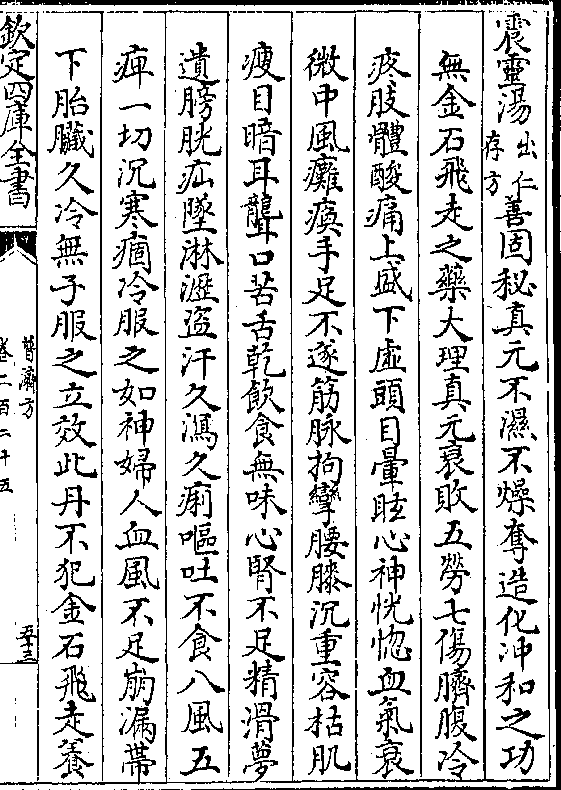 震靈湯出仁存方善固秘真元不濕不燥奪造化冲和之功
無金石飛走之藥大理真元衰敗五勞七傷臍腹冷
疼肢體酸痛上盛下虛頭目暈眩心神恍惚血氣衰
微中風癱瘓手足不遂筋脉拘攣腰膝沉重容枯肌
瘦目暗耳聾口苦舌乾飲食無味心腎不足精滑夢
遺膀胱疝墜淋瀝盗汗久瀉久痢嘔吐不食八風五
痺一切沉寒痼冷服之如神婦人血風不足崩漏帶
下胎臟久冷無子服之立效此丹不犯金石飛走養
欽定四庫全書
普濟方
卷二百二十五
五十三